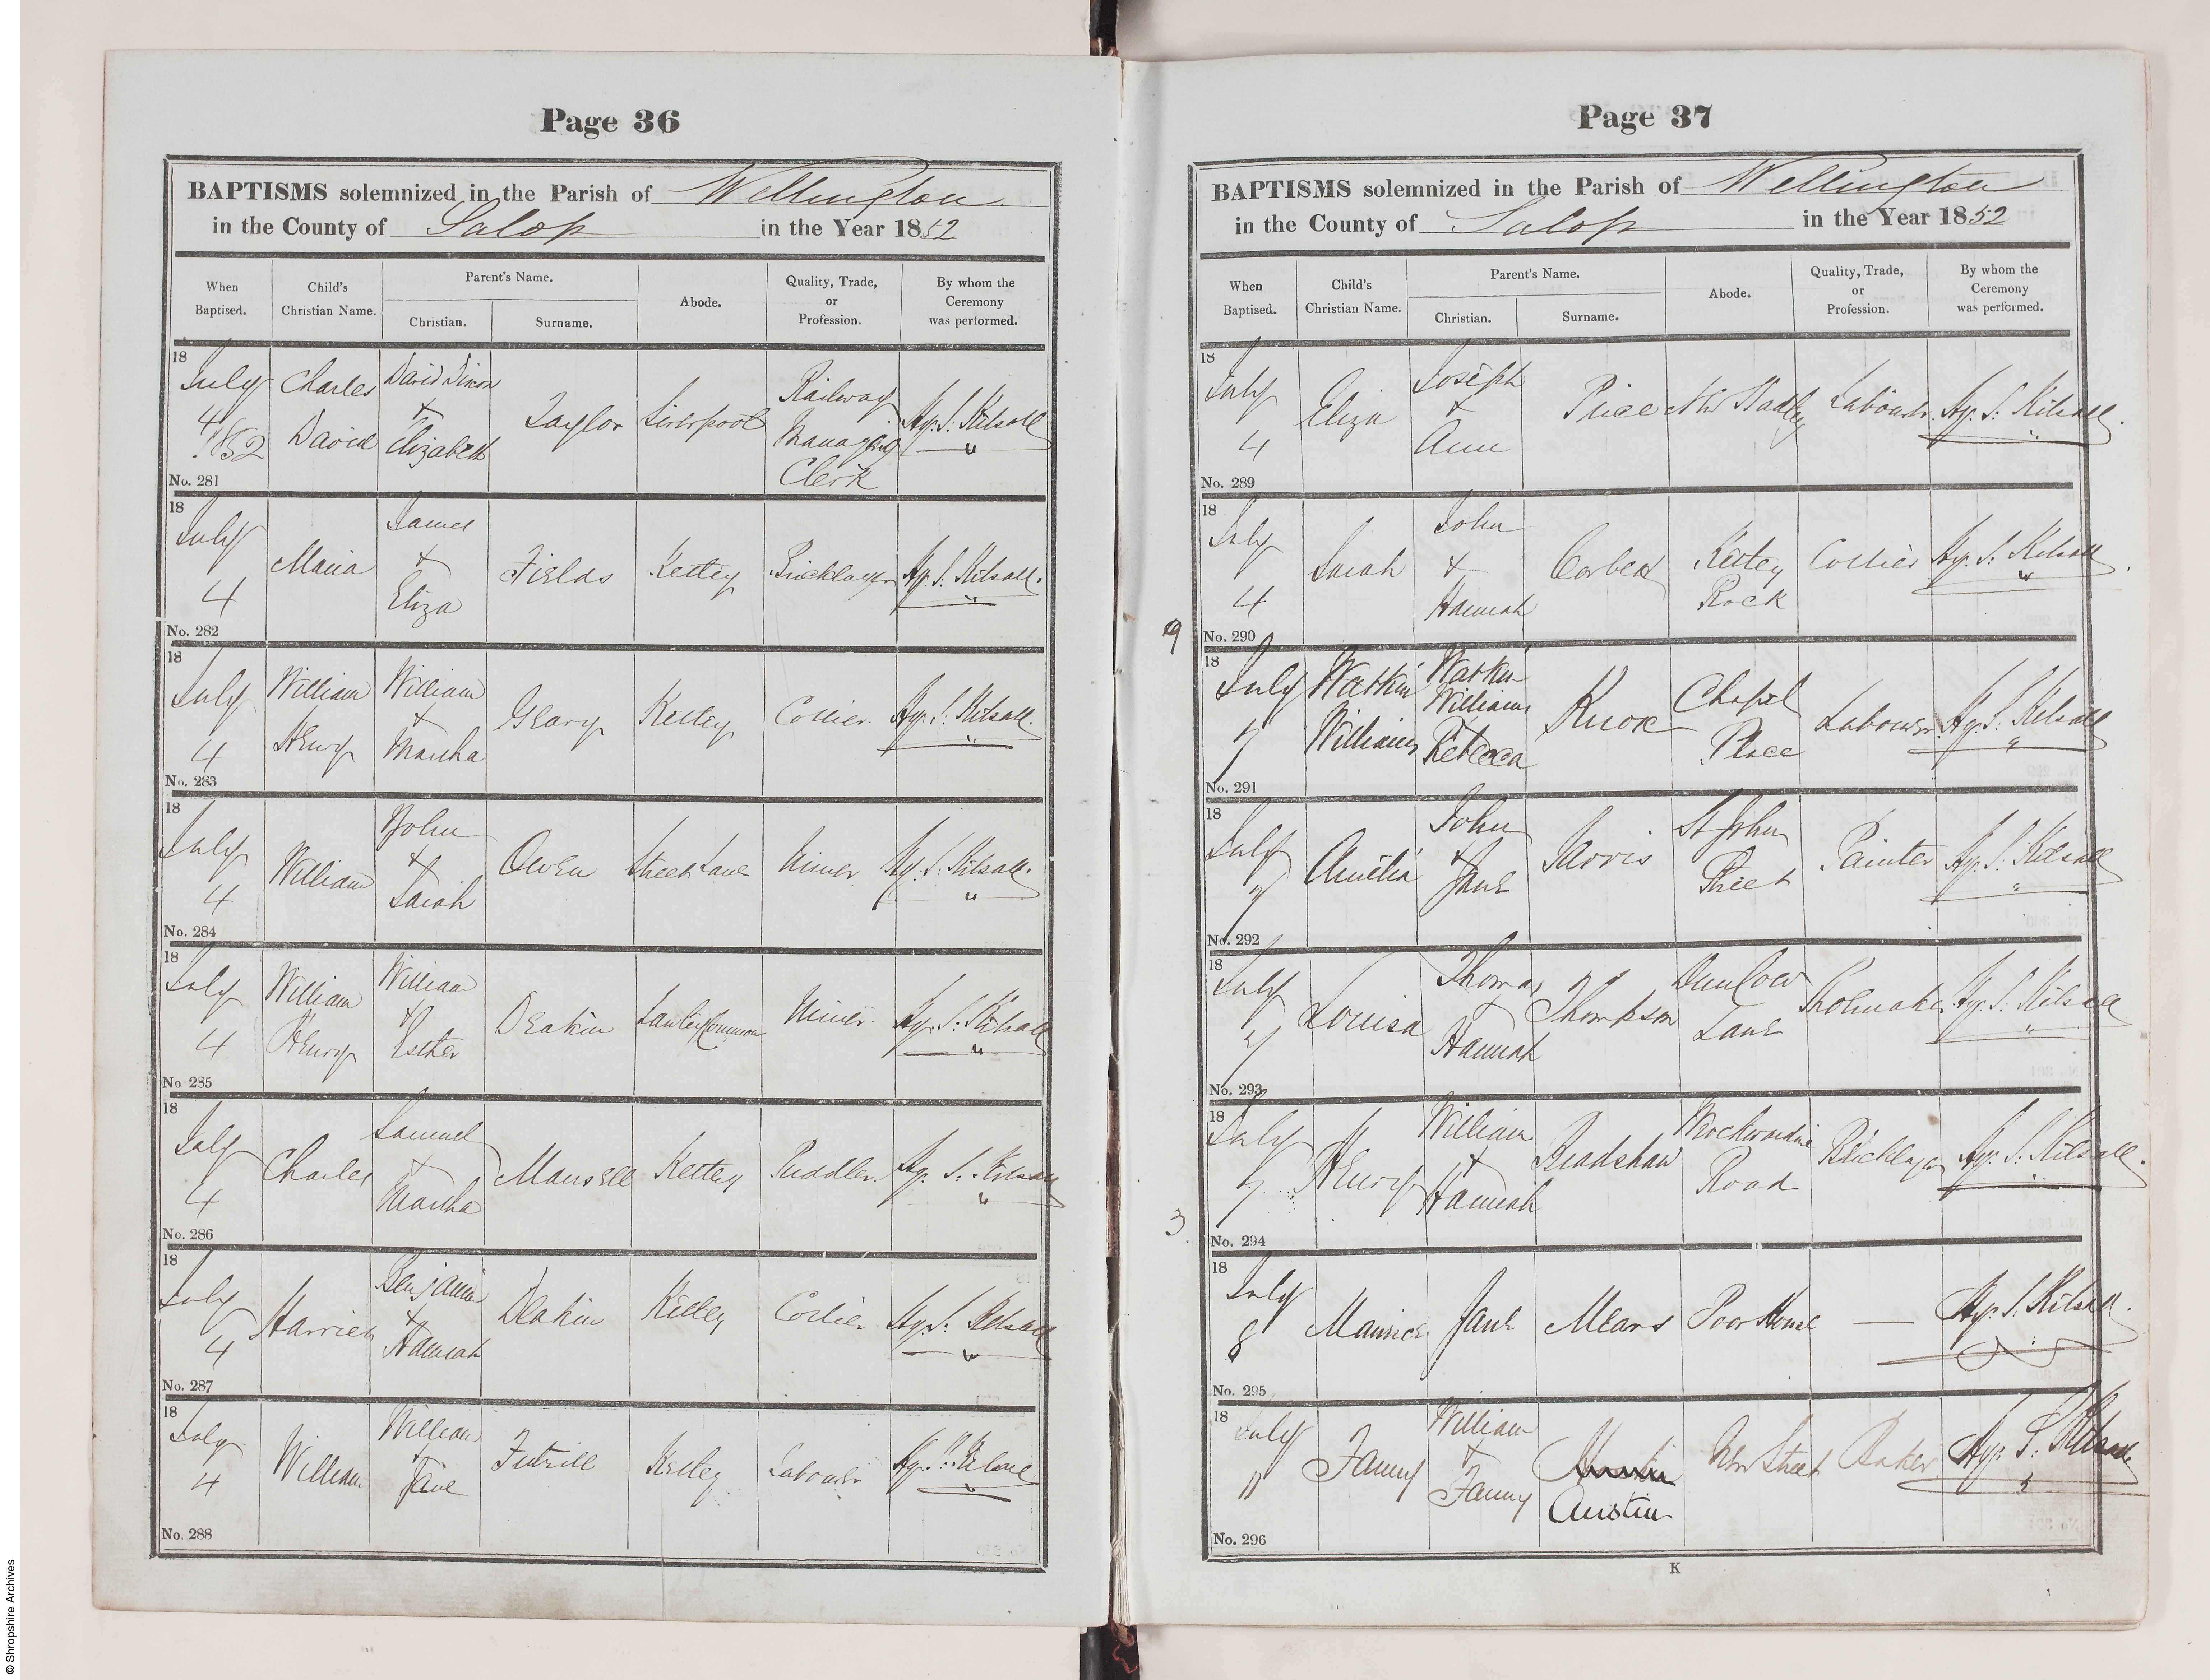 Page 36
BAPTISMS solemnized in the Parish of Wellington
in the County of Salop in the Year 1852
When Baptised. Child's Christian Name. Parent's Name. Christian. Surname. Abode. Quality, Trade, or Profession. By whom the Ceremony was performed.
18 July 4 1852 Charles David David Dixon & Elizabeth Taylor Liverpool Railway Managing Clerk Hy. S. Kilsall
No. 281
18 July 4 Maria & Eliza Fields Ketley Bricklayer Hy. S. Kilsall.
No. 282
18 July 4 William Henry William & Martha Geary Ketley Collier. Hy. S. Kilsall.
No. 283
18 July 4 William John & Sarah Owen Street Lane Miner Hy. S. Kilsall.
No. 284
18 July 4 William Henry William & Esther Deakin Lawley Common Miner. Hy. S. Kilsall
No 285
18 July 4 Charles Samuel & Martha Mansell Ketley Puddler. Hy. S. Kilsall
No. 286
18 July 4 Harriet Benjamin & Hannah Deakin Ketley Collier Hy. S. Kilsall
No. 287
18 July 4 William William & Jane Futrill Ketley Labourer Hy. S. Kilsall
No. 288
Page 37
BAPTISMS solemnized in the Parish of Wellington
in the County of Salop in the Year 1852
When Baptised. Child's Christian Name. Parent's Name. Christian. Surname. Abode. Quality, Trade, or Profession. By whom the Ceremony was performed.
18 July 4 Eliza Joseph & Ann Price Hadley Labourer. Hy. S. Kilsall.
No. 289
18 July 4 Sarah John & Hannah Corbett Ketley Rock Collier Hy. S. Kilsall.
9 No. 290
18 July 7 Watkin Williams Watkin Williams Rebecca Knox Chapel Place Labourer. Hy. S. Kilsall
No. 291
18 July 7 Amelia John & Jane Jarvis St John Street Painter Hy. S. Kilsall
No. 292
18 July 7 Louisa Thomas & Hannah Thompson Dun Cow Lane Shoemaker Hy. S. Kilsall
No. 293
18 July 7 Henry William & Hannah Bradshaw Wrockwardine Road Bricklayer Hy. S. Kilsall.
3. No. 294
18 July 8 Maurice Jane Mears Poor House — Hy. S. Kilsall.
No. 295
18 July 11 Fanny William & Fanny Austin New Street Baker Hy. S. Kilsall
No. 296
K
© Shropshire Archives